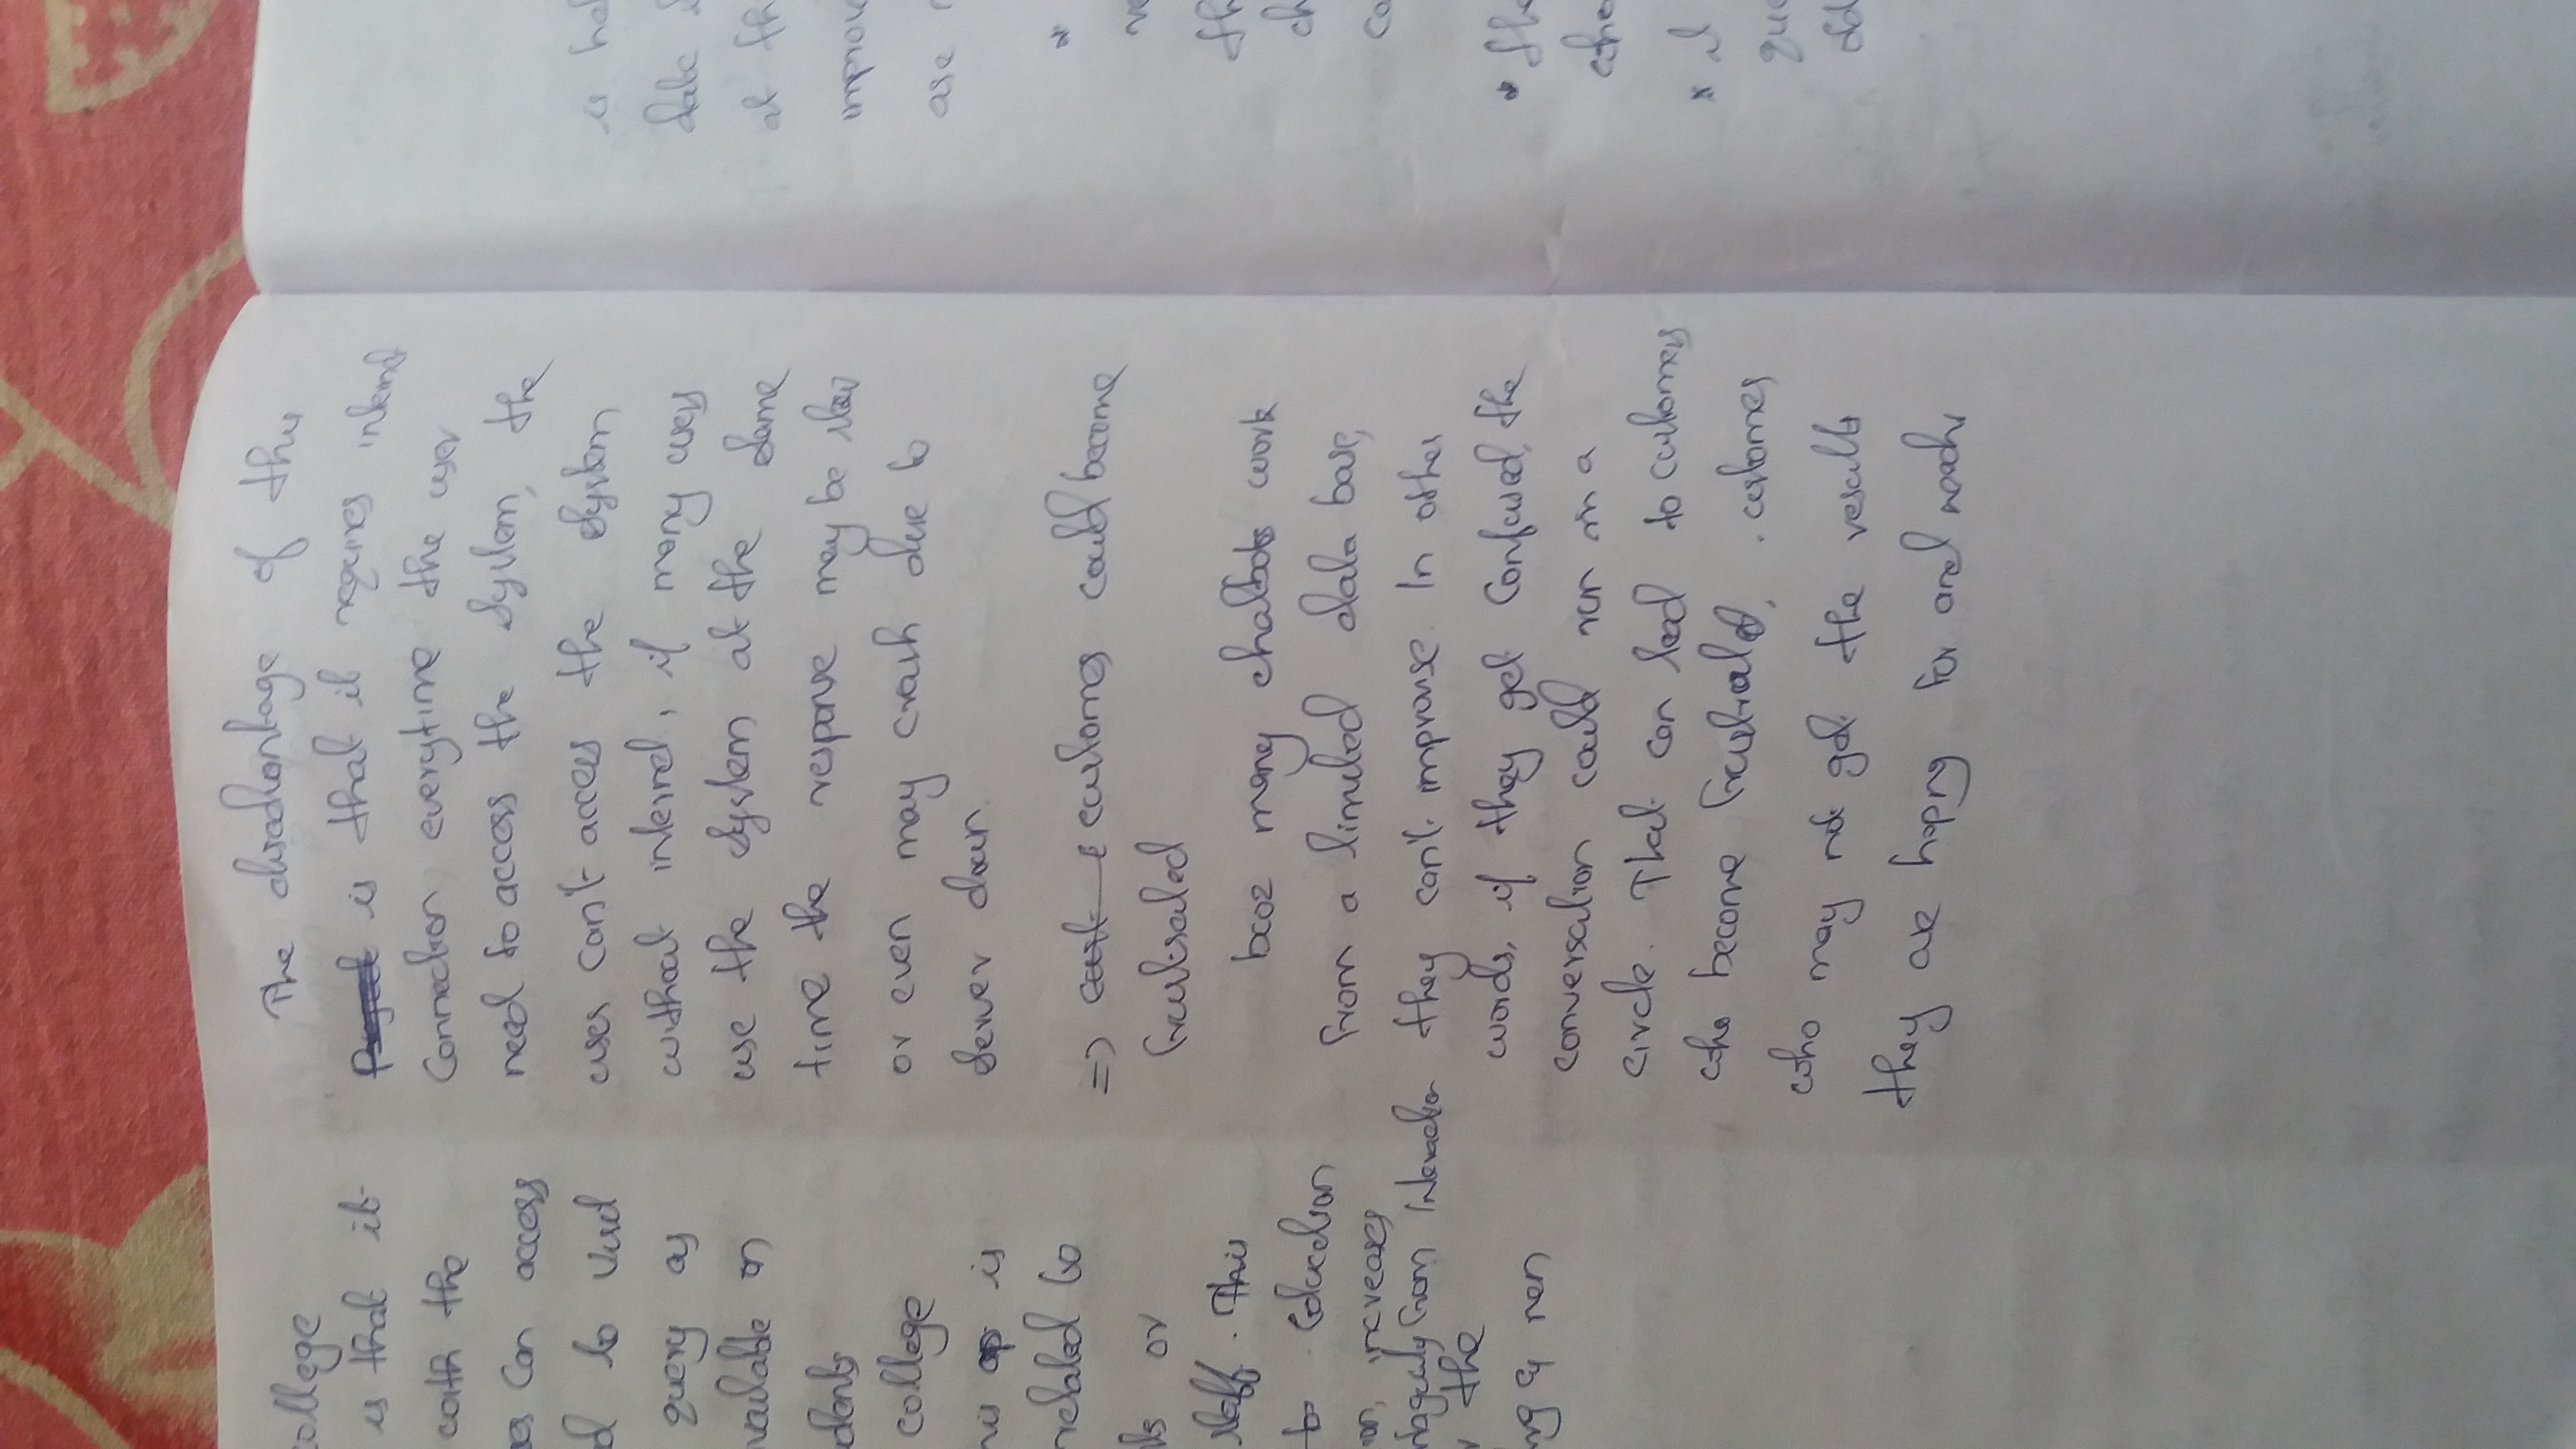 college
is that it
with the
can access
d to visit
query as
vailable on
dents
college
is
related to
or
staff. This
to Education
on, increases
from interaction
the
ng & non
The disadvantage of this
is that it requires internet
Connection everytime the user
need to access the system, the
uses can't access the system
without internet, if many uses
use the system at the same
time the response may be slow
or even may crash due to
server down.
=> customes could become
frustrated
bcoz many chatbots work
from a limited data base,
they can't improvise. In other
words, if they get confused, the
conversation could run in a
circle. That can lead to customers
who become frustrated. customes
who may not get the results
they are hoping for and needs
is
at th
improv
are
*
th
ch
co
* the
* it
que